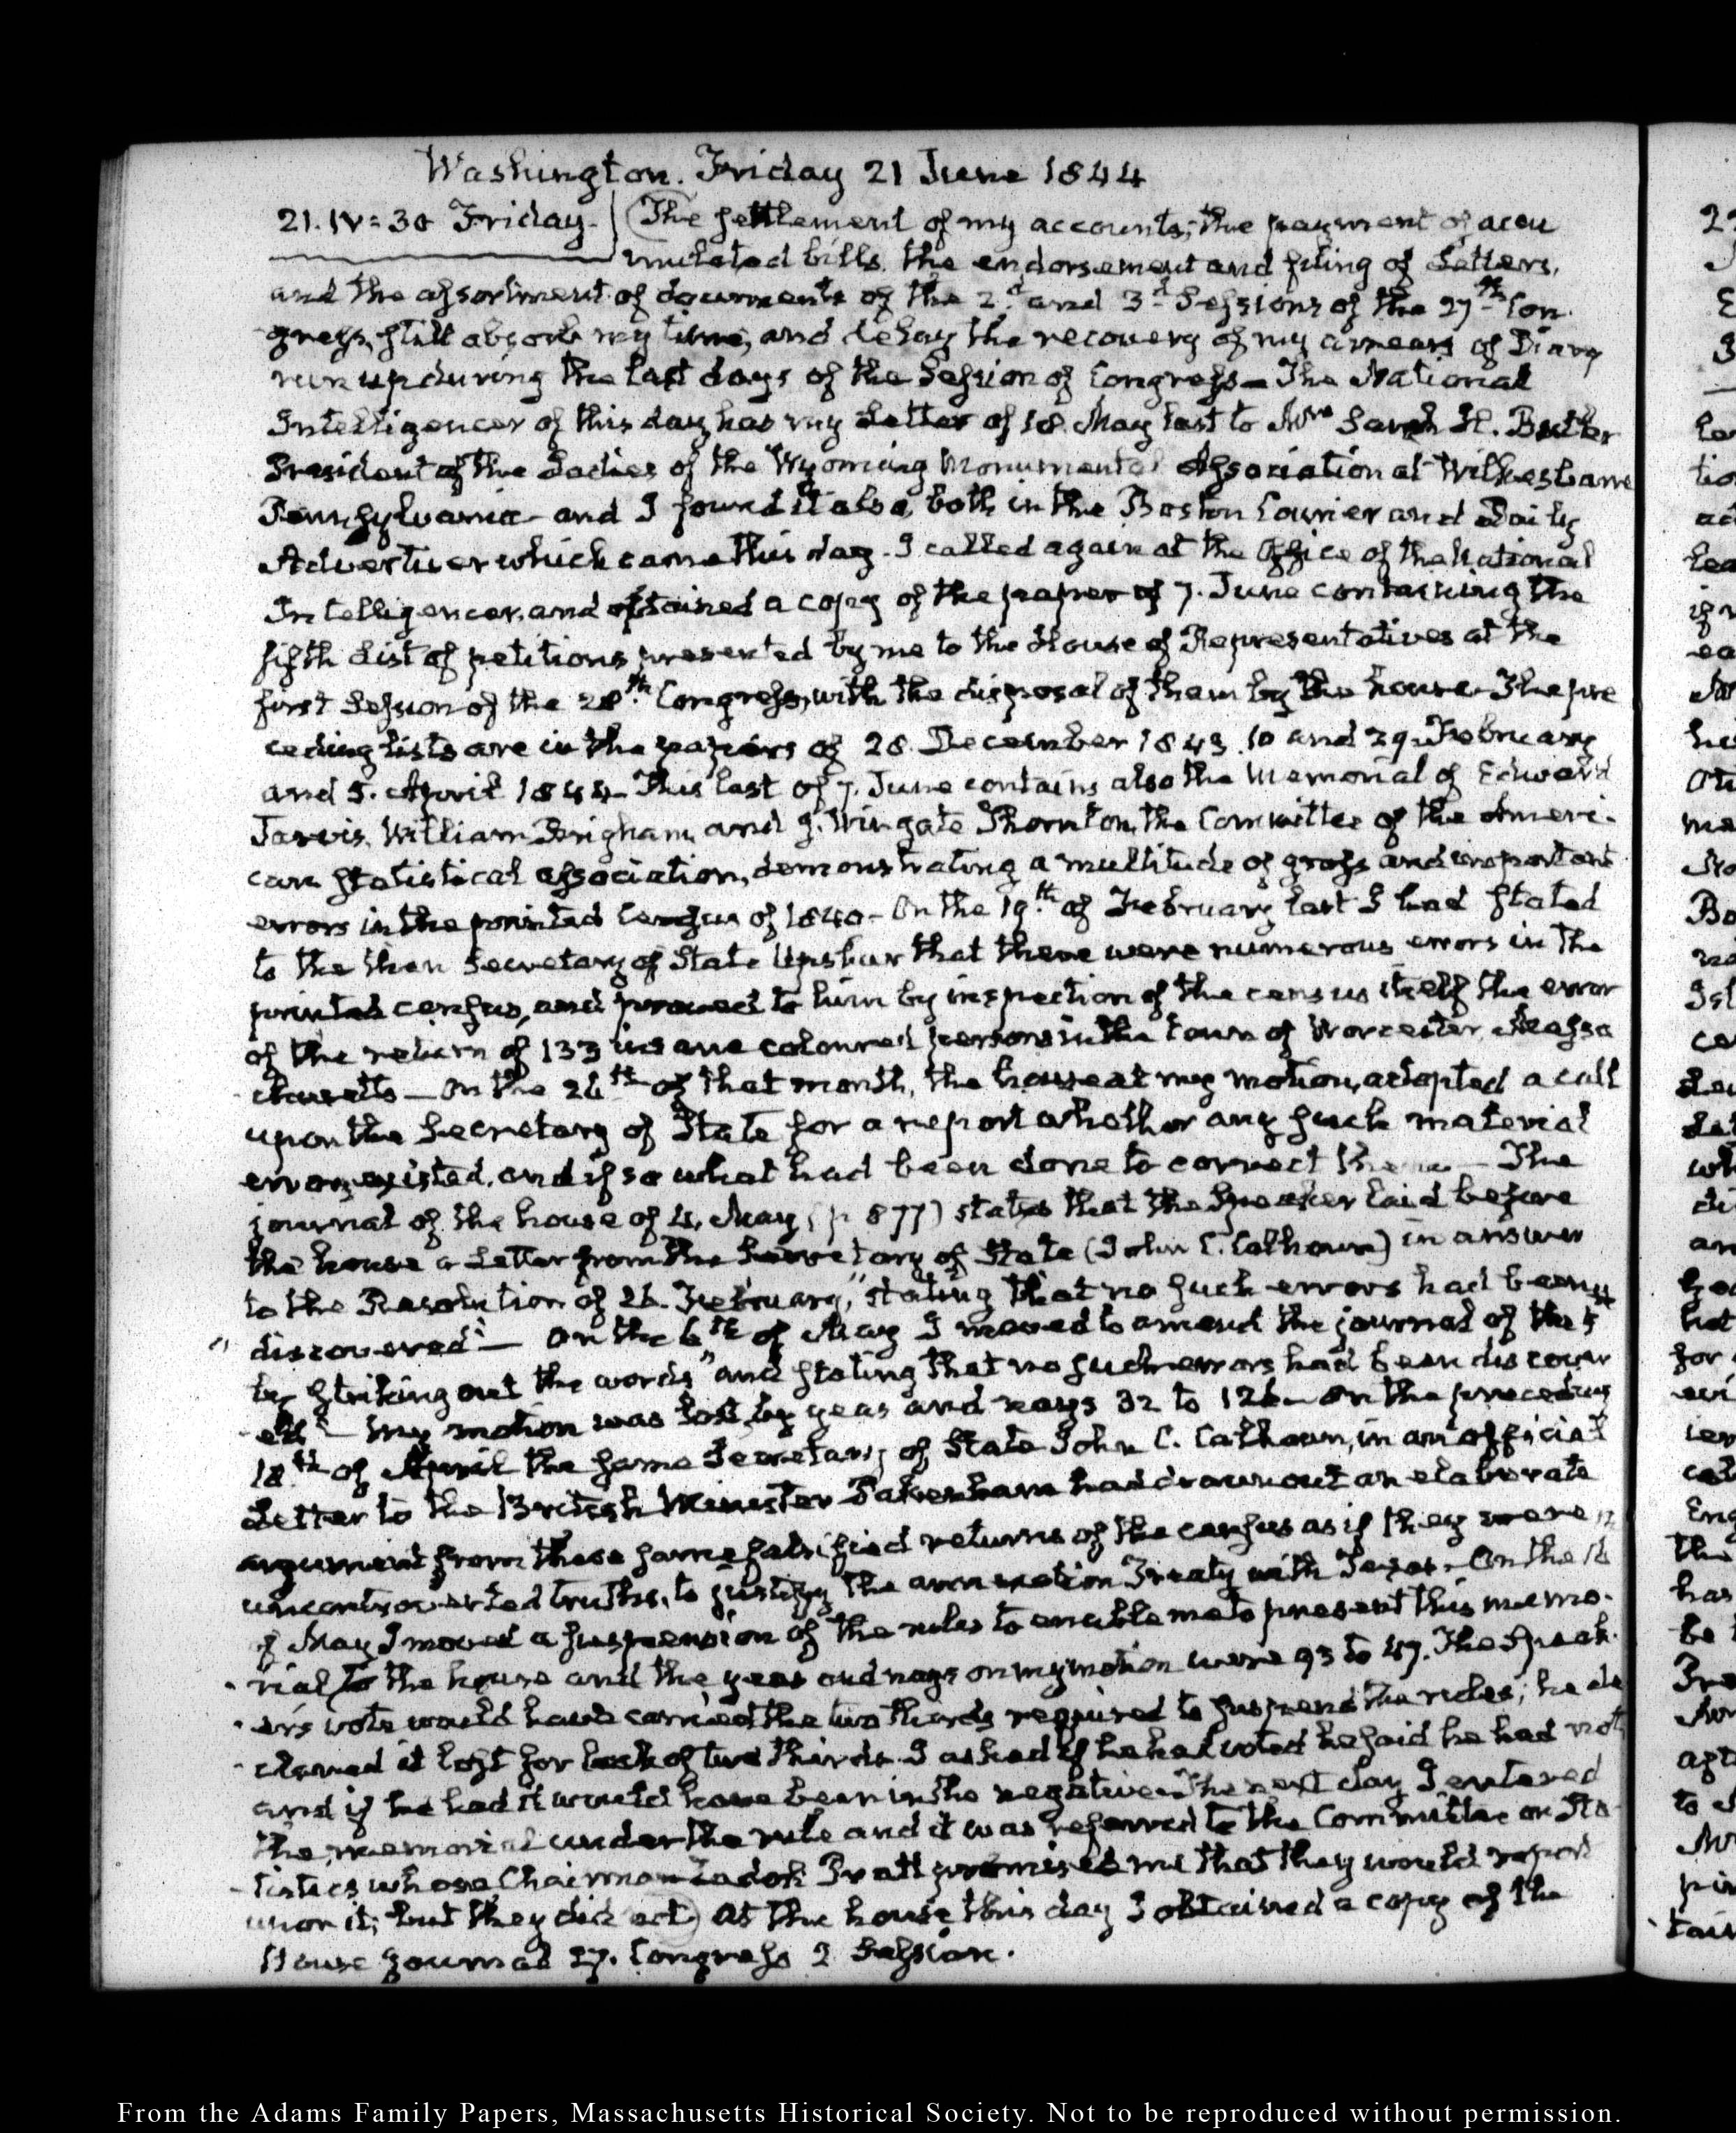 Washington. Friday 21 June 1844
21. IV=30 Friday. The settlement of my accounts, the payment of accu
mulated bills, the endorsement and filing of Letters,
and the assortment of documents of the 2d and 3d Sessions of the 27th Con
gress, still absorb my time, and delay the recovery of my arrears of Diary
run up during the last days of the Session of Congress— The National
Intelligencer of this day has my Letter of 18. May last to Mrs Sarah H. Butler
President of the Ladies of the Wyoming Monumental Association at Wilkesbarre
Pennsylvania— and I found it also, both in the Boston Courier and Daily
Advertiser which came this day. I called again at the Office of the National
Intelligencer, and obtained a copy of the paper of 7. June containing the
fifth List of petitions presented by me to the House of Representatives at the
first Session of the 28th Congress, with the disposal of them by the house. The pre
ceding lists are in the papers of 28 December 1843. 10 and 29. February
and 5. April 1844— This last of 7. June contains also the Memorial of Edward
Jarvis, William Brigham, and J. Wingate Thornton, the Committee of the Ameri-
can statistical association, demonstrating a multitude of gross and important
errors in the printed Census of 1840— On the 19th of February last I had stated
to the then Secretary of State Upshur that there were numerous errors in the
printed census, and proved to him by inspection of the census itself the error
of the return of 133 insane coloured persons in the town of Worcester, Massa
chusetts— On the 26th of that month, the house at my motion, adopted a call
upon the Secretary of State for a report whether any such material
errors existed, and if so what had been done to correct them— The
journal of the house of 4. May (p 877) states that the Speaker laid before
the house a Letter from the Secretary of State (John C. Calhoun) in answer
to the Resolution of 26. February, "stating that no such errors had been
" discovered"— On the 6th of May I moved to amend the journal of the 4
by striking out the words "and stating that no such errors had been discover
-ed"— my motion was lost, by yeas and nays 32 to 126— On the preceding
18th of April the same Secretary of State John C. Calhoun, in an official
Letter to the British Minister Pakenham had drawn out an elaborate
argument from these same falsified returns of the census as if they were
uncontroverted truths, to justify the annexation Treaty with Texas. On the
of May I moved a suspension of the rules to enable me to present this memo-
-rial to the house and the yeas and nays on my motion were 93 to 47. The Speak-
-ers vote would have carried the two thirds required to suspend the rules; he de
-clared it lost for lack of two thirds. I asked if he had voted he said he had not
and if he had it would have been in the negative— The next day I entered
the memorial under the rule and it was referred to the Committee on Sta
-tistics whose Chairman Zadok Pratt promised me that they would report
upon it; but they did not) At the house this day I obtained a copy of the
House Journal 27. Congress 2 Session.
From the Adams Family Papers, Massachusetts Historical Society. Not to be reproduced without permission.